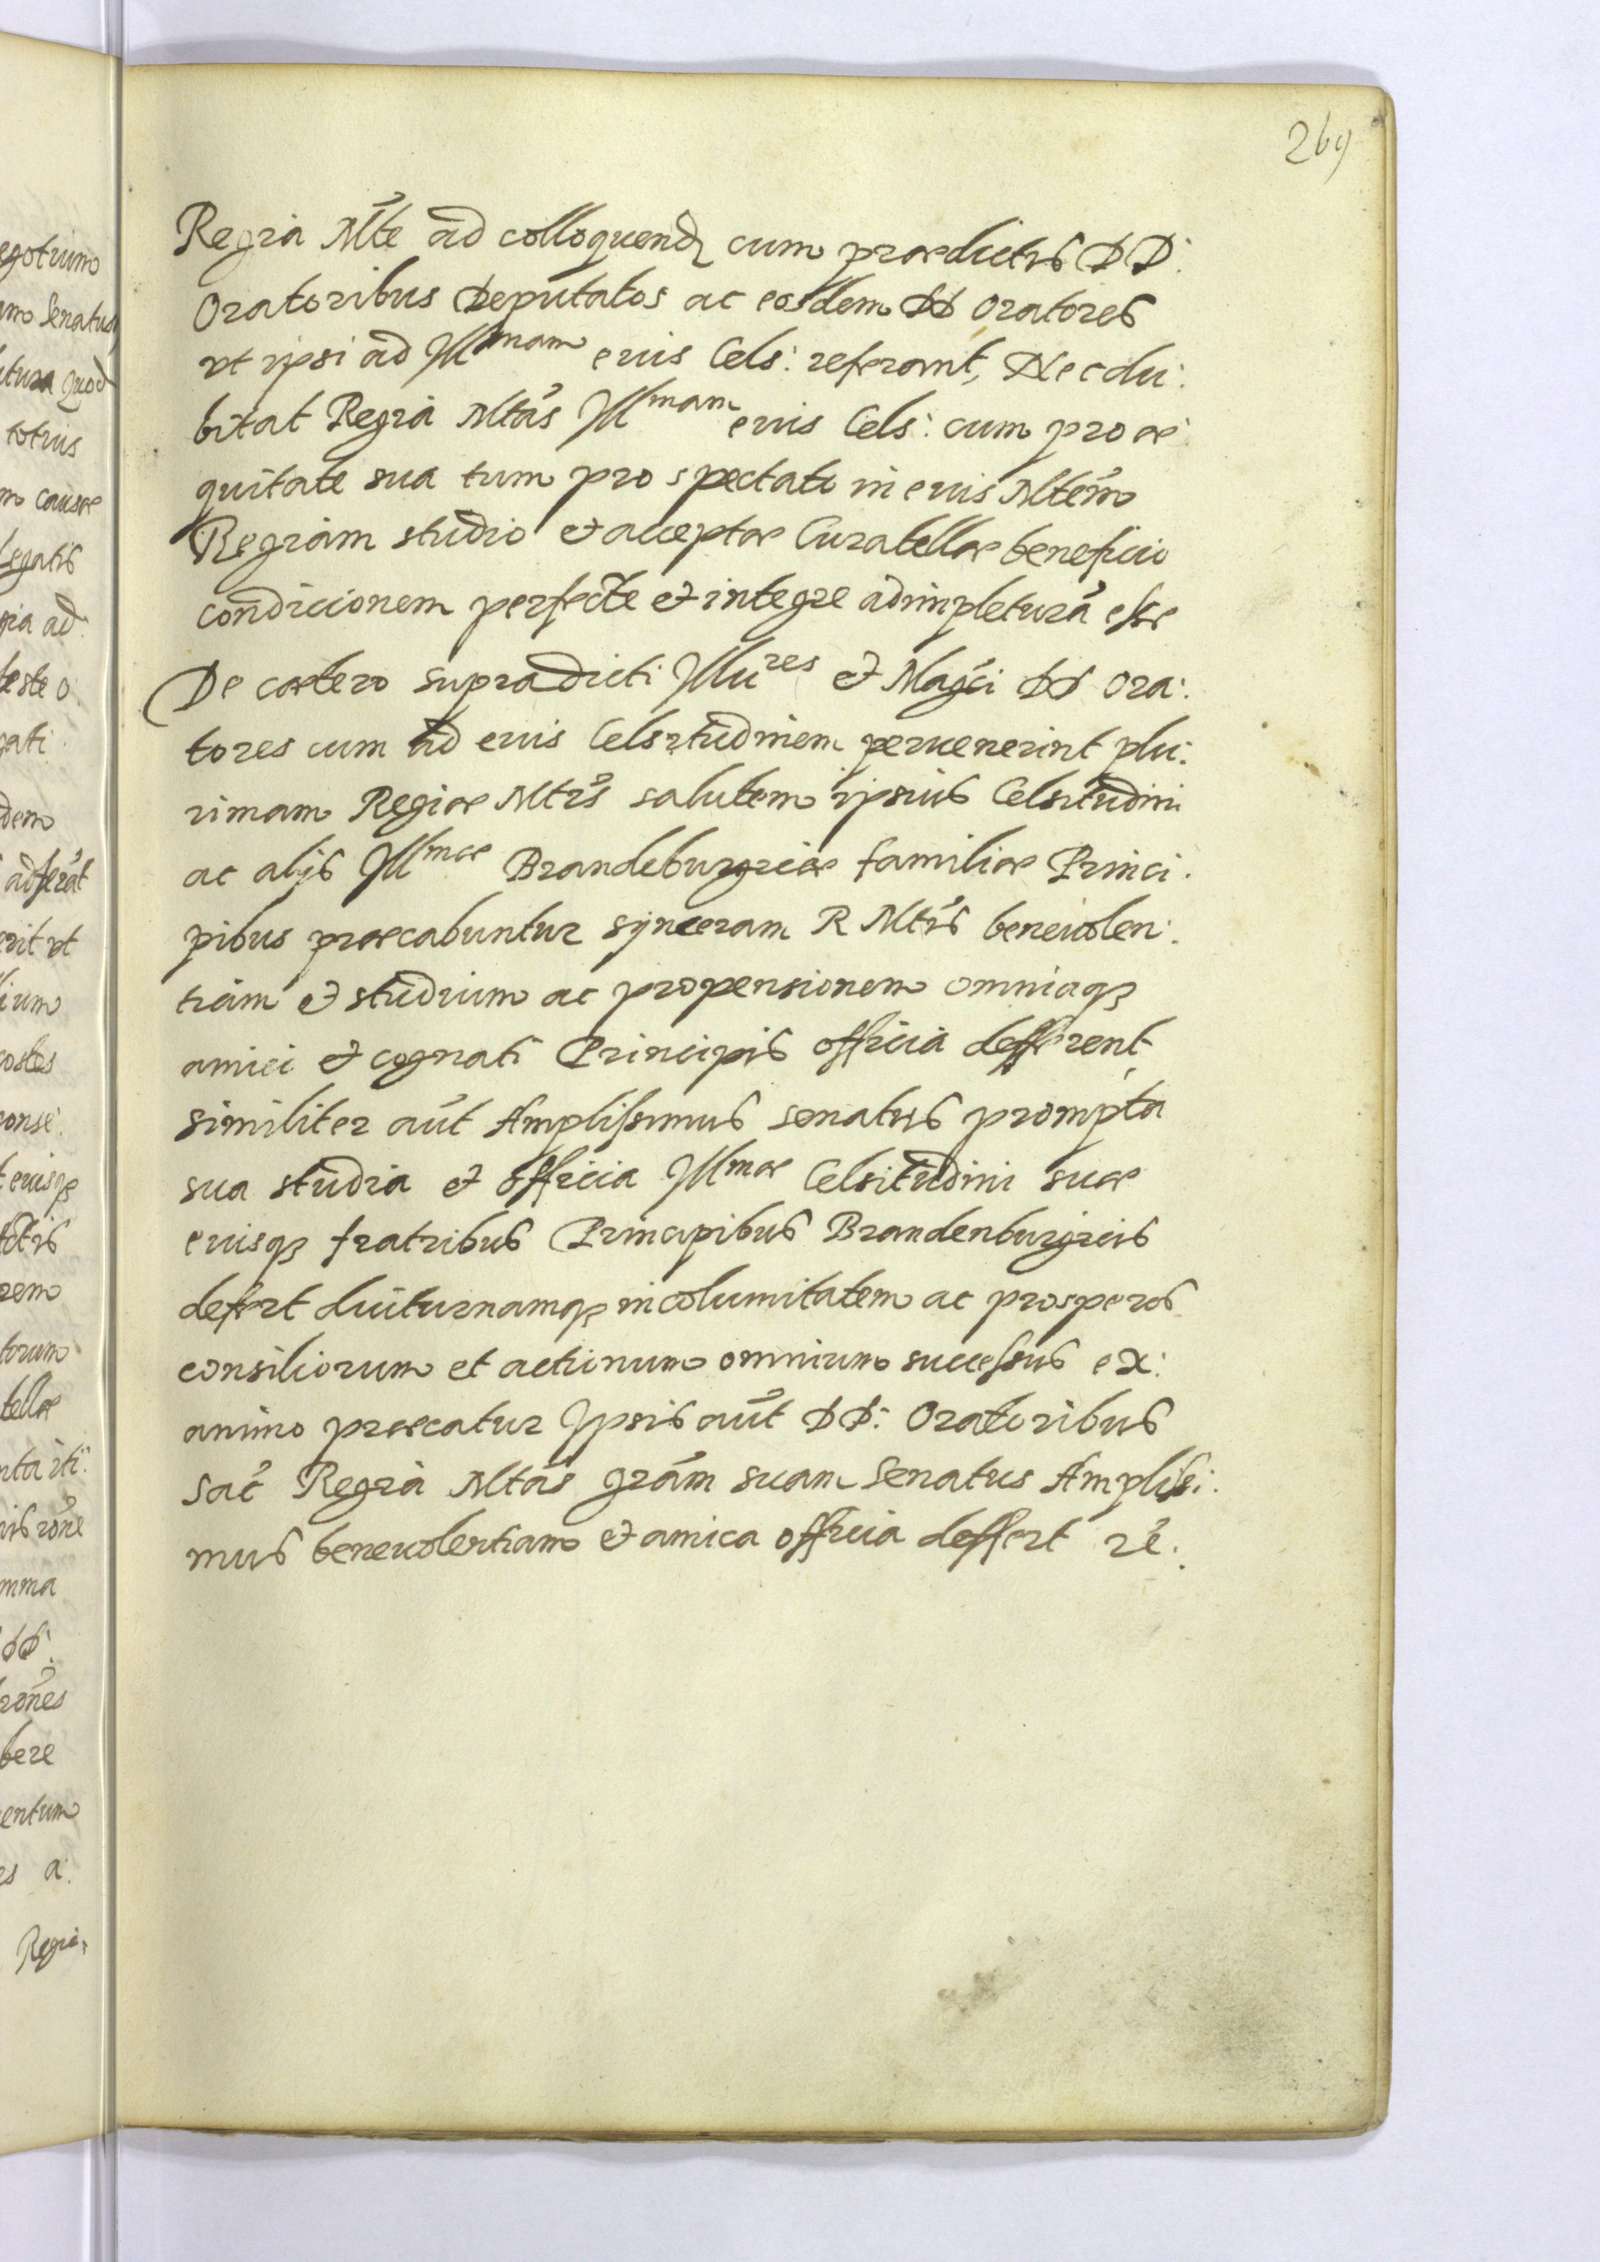 269
Regia Mte ad colloquend cum praedictis DD:
Oratoribus Deputatos ac eosdem DD Oratores
vt ipsi ad Illmam eius Cels: referant, Nec du:
bitat Regia Mtas Illmam eius Cels: cum pro ae:
quitate sua tum pro spectato in eius Mtem
Regiam studio et acceptae Curatellae beneficio
condicionem perfecte et integre adimpleturā esse
De caetero supradicti Illures et Magci DD Ora:
tores cum ad eius Celsitudinem peruenerint plu:
rimam Regiae Mtis salutem ipsius Celsitudini
ac alijs Illmae Brandeburgicae familiae Princi:
pibus praecabuntur synceram R Mtis beneuolen:
tiam et studium ac propensionem omniaq3
amici et cognati Principis officia defferent
similiter aut Amplissimus senatus prompta
sua studia et officia Illmae Celsitudini suae
eiusq3 fratribus Principibus Brandenburgicis
defert diuturnamq3 incolumitatem ac prosperos
consiliorum et actionum omnium successus ex:
animo praecatur Ipsis aut DD: Oratoribus
Sac Regia Mtas gram suam Senatus Amplissi:
mus beneuolentiam et amica officia deffert re:
egotium
Senatus
quod
totius
causae
Legatis
ad:
gati
adferat
erit vt
eiusq3
torum
tellae
omma
DD:
bere
entum
a:
Regia,